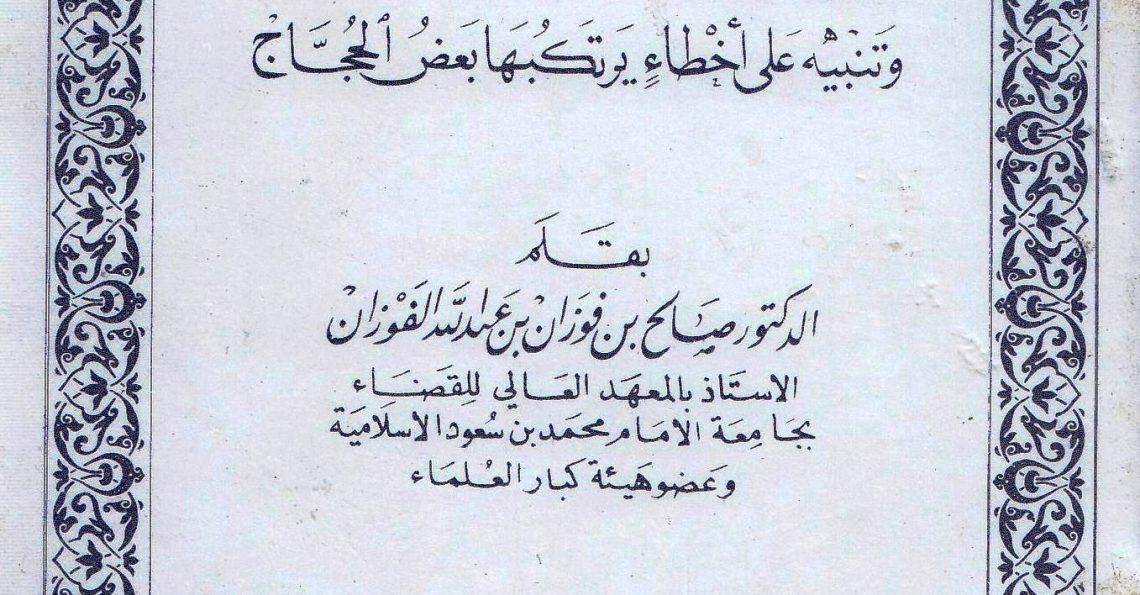 وَتَنْبِيْه عَلى أخْطاءٍ يَرتَكبُهَا بَعضُ الحُجَّاجْ
بقَلَم
الدكتور صَالح بن فوزَانْ بن عَبدالله الفَوْزان
الاستَاذ بالمعهَد العَالي للِقضَاء
بجَامِعَة الامَام محمَد بن سُعود الاسلاميَة
وَعَضو هَيئة كبار العُلمَاء